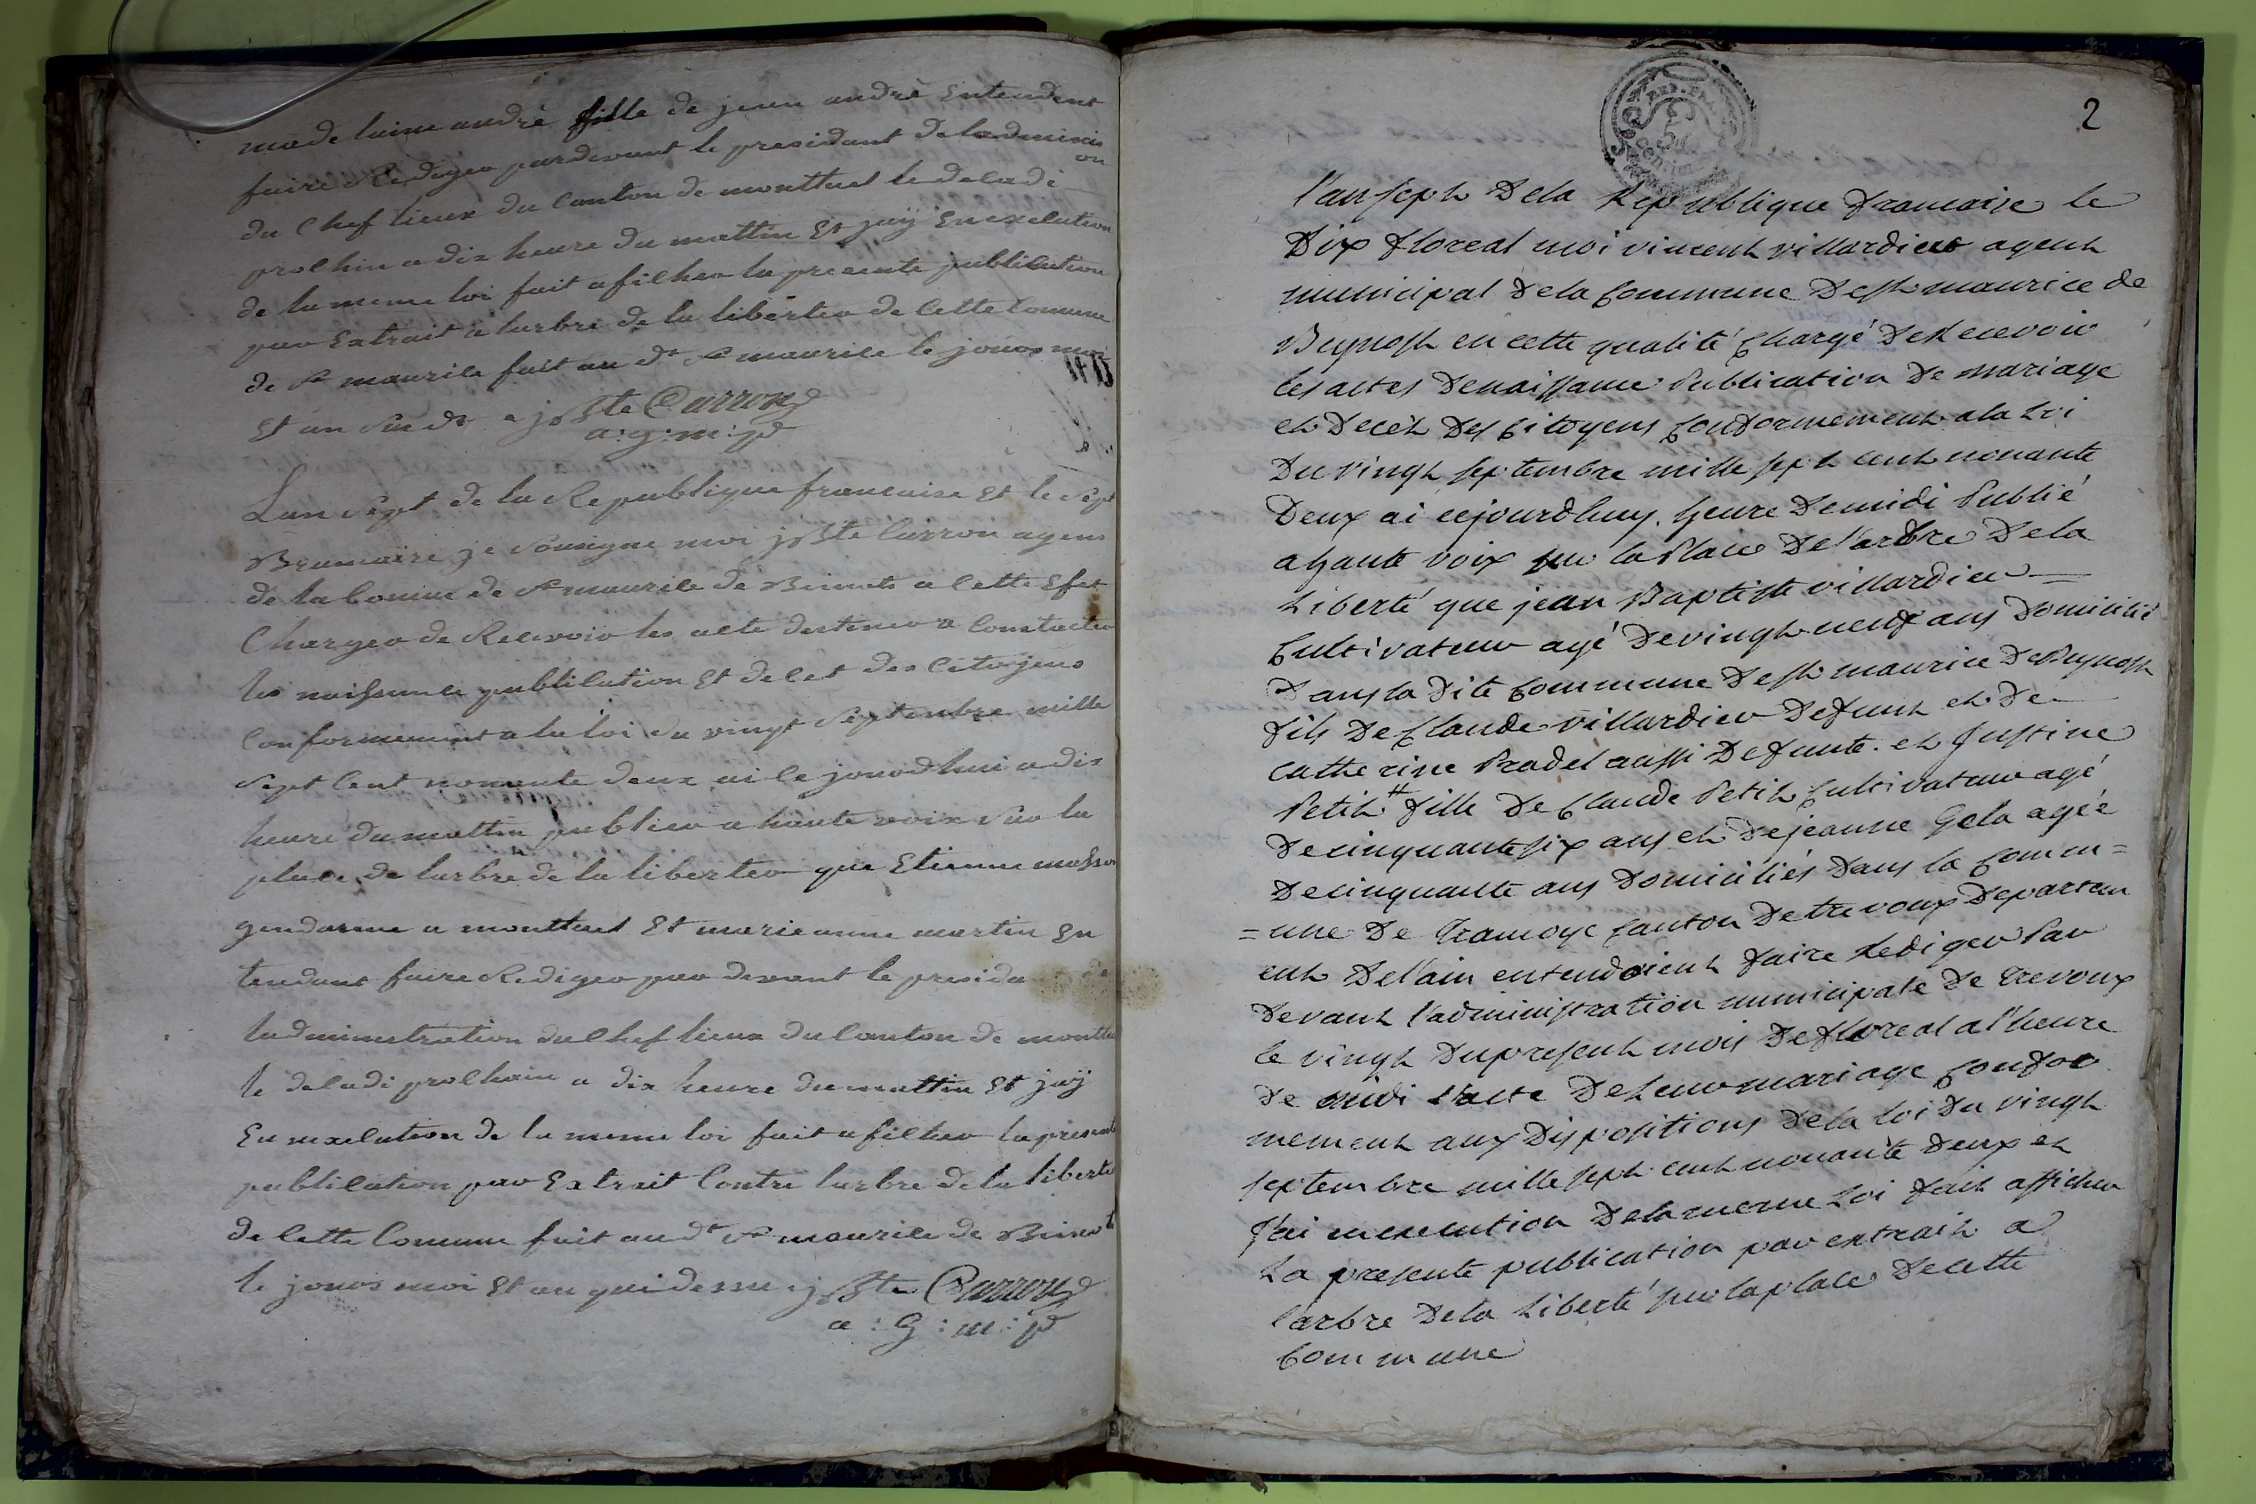 madelaine andré fille de jean andré Entendent
faire Rediger pardevant le presidant deladminis
on
du Chef lieux du Canton de montluel le deladi
prolhin a dix heure du mattin Et jaÿ En exelution
de la meme loi fait afilher la presente publilation
par Extrait a larbre de la liberter de Cette Comune
de St maurile fait au dt St maurile le jours moi
Et an Sus dt jn Bte Carron
a : g : m : p
Lan Sept de la Republique francaise Et le Sept
Brumaire je Sousigne moi jn Bte Carron agent
de la Comune de St maurile de Beinots a Cette Efet
Charger de Relevoir les alte destiner a Constacter
les naissanle publilation Et delet des Citoÿens
Conformement a la loi du vingt Septembre mille
Sept Cent nonante deux ai le jourdhui a dix
heure du mattin publier a haute voix Sur la
plale de larbre de la liberter que Etienne masson
gendarme a montluel Et marieanne martin En
tendant faire Rediger par devant le presida de
ladminnistration du Chef lieux du Canton de montlu
le deladi prolhain a dix heure du mattin Et jaÿ
En nexelution de la meme loi fait afilher la presente
publilation par Extrait Contre larbre de la liberte
de Cette Comune fait au dt St maurile de Beinot
le jours moi Et an que dessu jn Bte Carron
a : G : m : p
2
REP. FRA
50
Centim
l'an sept De la Republique francaise le
Dix floreal moi vincent villardier agent
municipal De la Commune De st maurice de
Beynost en cette qualité Chargé De Recevoir
les actes De naissance Publication De mariage
et Decès Des Citoyens Conformement a la Loi
Du vingt septembre mille sept cent nonante
Deux ai cejourdhuy heure De midi Publié
a haute voix sur la Place De l'arbre De la
Liberté que jean Baptiste villardier
Cultivateur agé De vingt neuf ans Domicilié
Dans la Dite Commune De st maurice De Beynost
fils De Claude villardier Defunt et De
Catherine Pradel aussi Defunte. et Justine
Petit # fille De Claude Petit Cultivateur agé
De cinquante six ans et De jeanne Gela agée
De cinquante ans Domiciliés Dans la Comm=
=une De Tramoye Canton De trevoux Departem
ent De l'ain entendoient faire Rediger Par
Devant l'administration municipale De trevoux
le vingt Du present mois De floreal a l'heure
De midi l'acte De Leur mariage Confor
mement aux Dispositions De la Loi Du vingt
septembre mille sept cent nonante Deux et
J'ai en execution De la meme Loi fait afficher
La presente publication par extrait a
l'arbre De la Liberté sur la place De cette
Commune